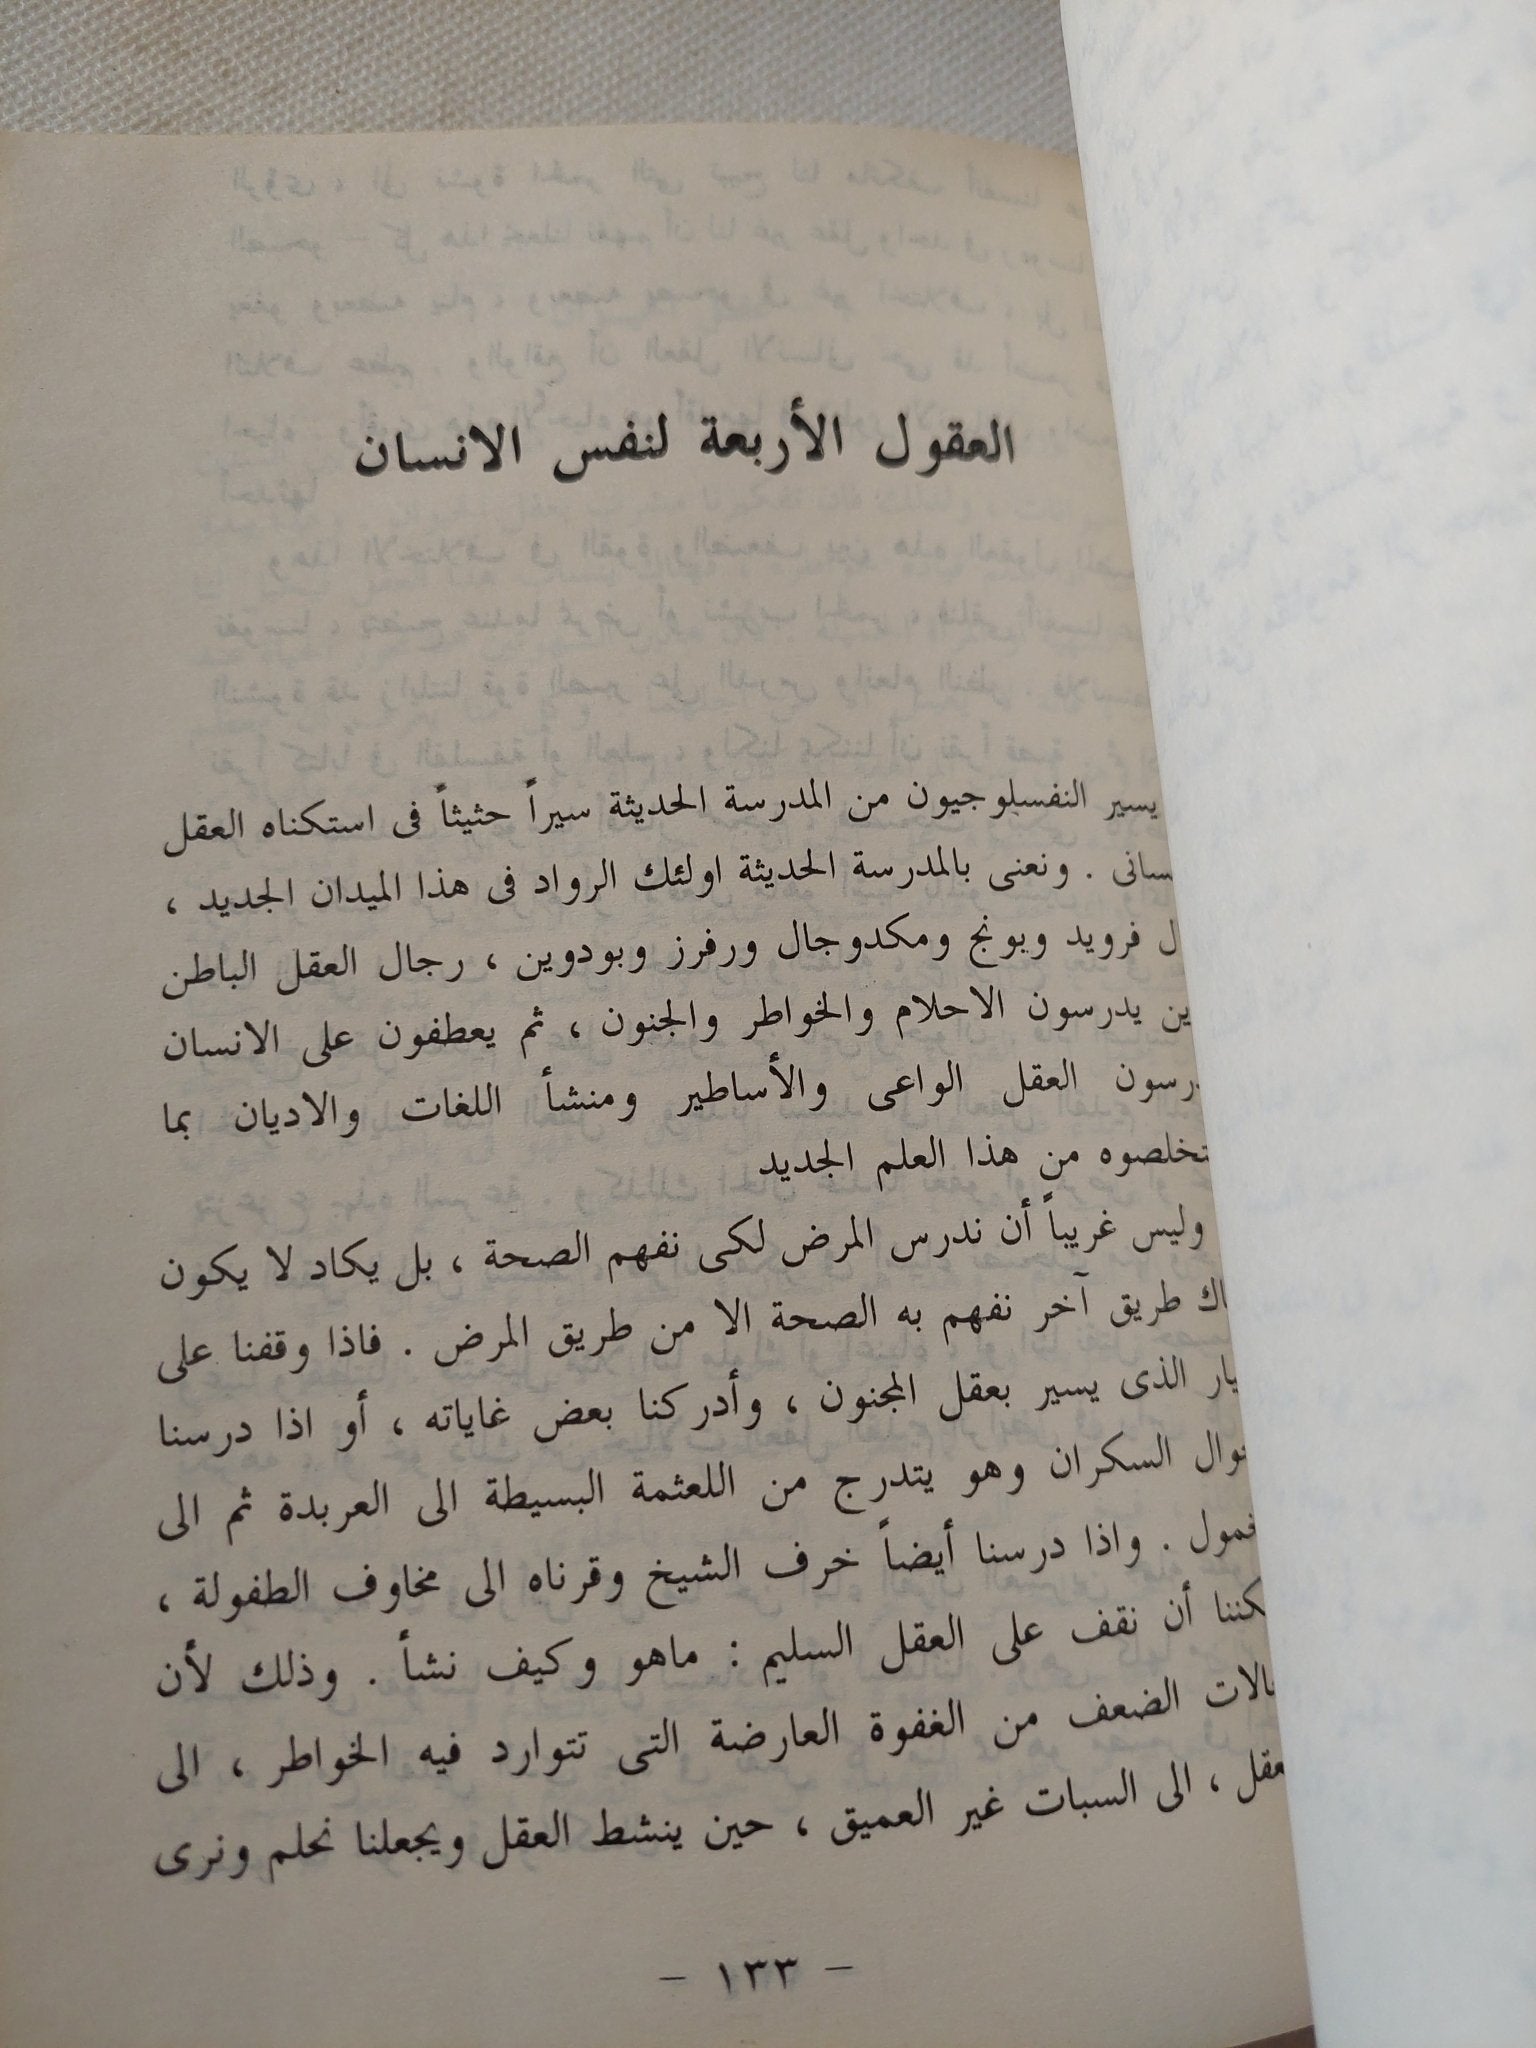 العقول الأربعة لنفس الانسان
يسير النفسلوجيون من المدرسة الحديثة سيراً حثيثاً فى استكناه العقل
سانى . ونعنى بالمدرسة الحديثة اولئك الرواد فى هذا الميدان الجديد ،
ل فرويد ويونج ومكدوجال ورفرز وبودوين ، رجال العقل الباطن
ين يدرسون الاحلام والخواطر والجنون ، ثم يعطفون على الانسان
رسون العقل الواعى والأساطير ومنشأ اللغات والاديان بما
تخلصوه من هذا العلم الجديد
وليس غريباً أن ندرس المرض لكى نفهم الصحة ، بل يكاد لا يكون
اك طريق آخر نفهم به الصحة الا من طريق المرض . فاذا وقفنا على
يار الذى يسير بعقل المجنون ، وأدركنا بعض غاياته ، أو اذا درسنا
وال السكران وهو يتدرج من اللعثمة البسيطة الى العربدة ثم الى
خمول . واذا درسنا أيضاً خرف الشيخ وقرناه الى مخاوف الطفولة ،
كننا أن نقف على العقل السليم : ماهو وكيف نشأ . وذلك لأن
الات الضعف من الغفوة العارضة التى تتوارد فيه الخواطر ، الى
عقل ، الى السبات غير العميق ، حين ينشط العقل ويجعلنا نحلم ونرى
– ١٣٣ –